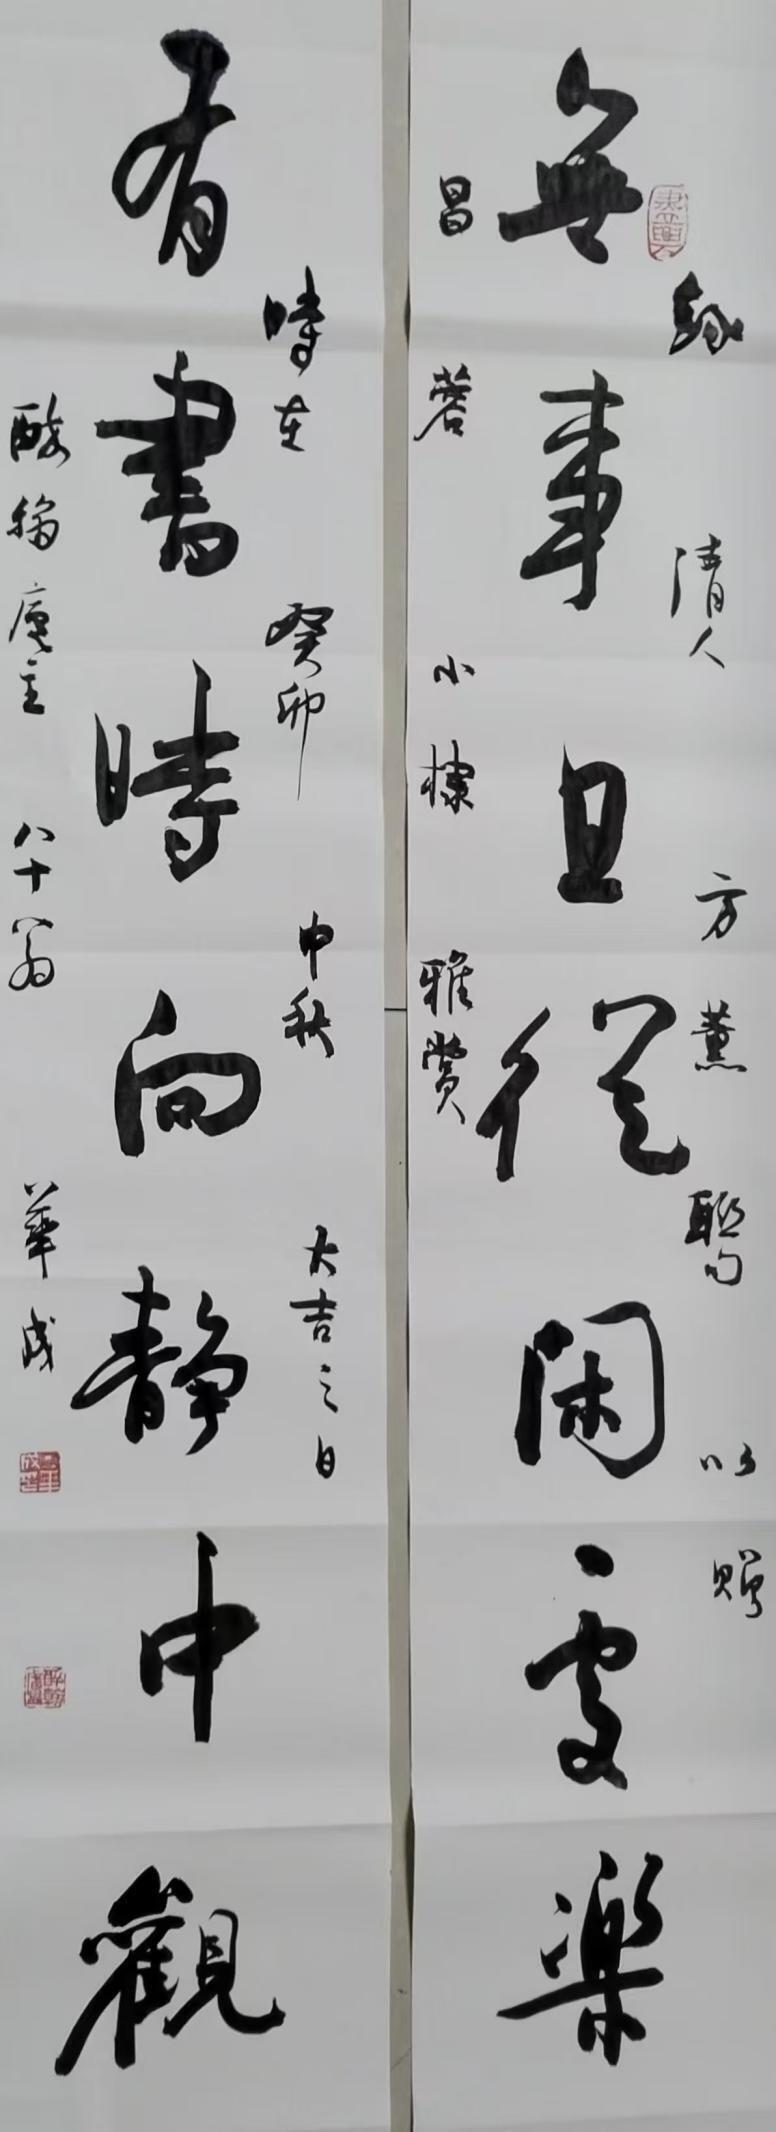 無事且從閑處樂
有書時向靜中觀
録清人方薰聯句以贈
昌蓉小棣雅賞
時在癸卯中秋大吉之日
酸翁庵主八十翁華成